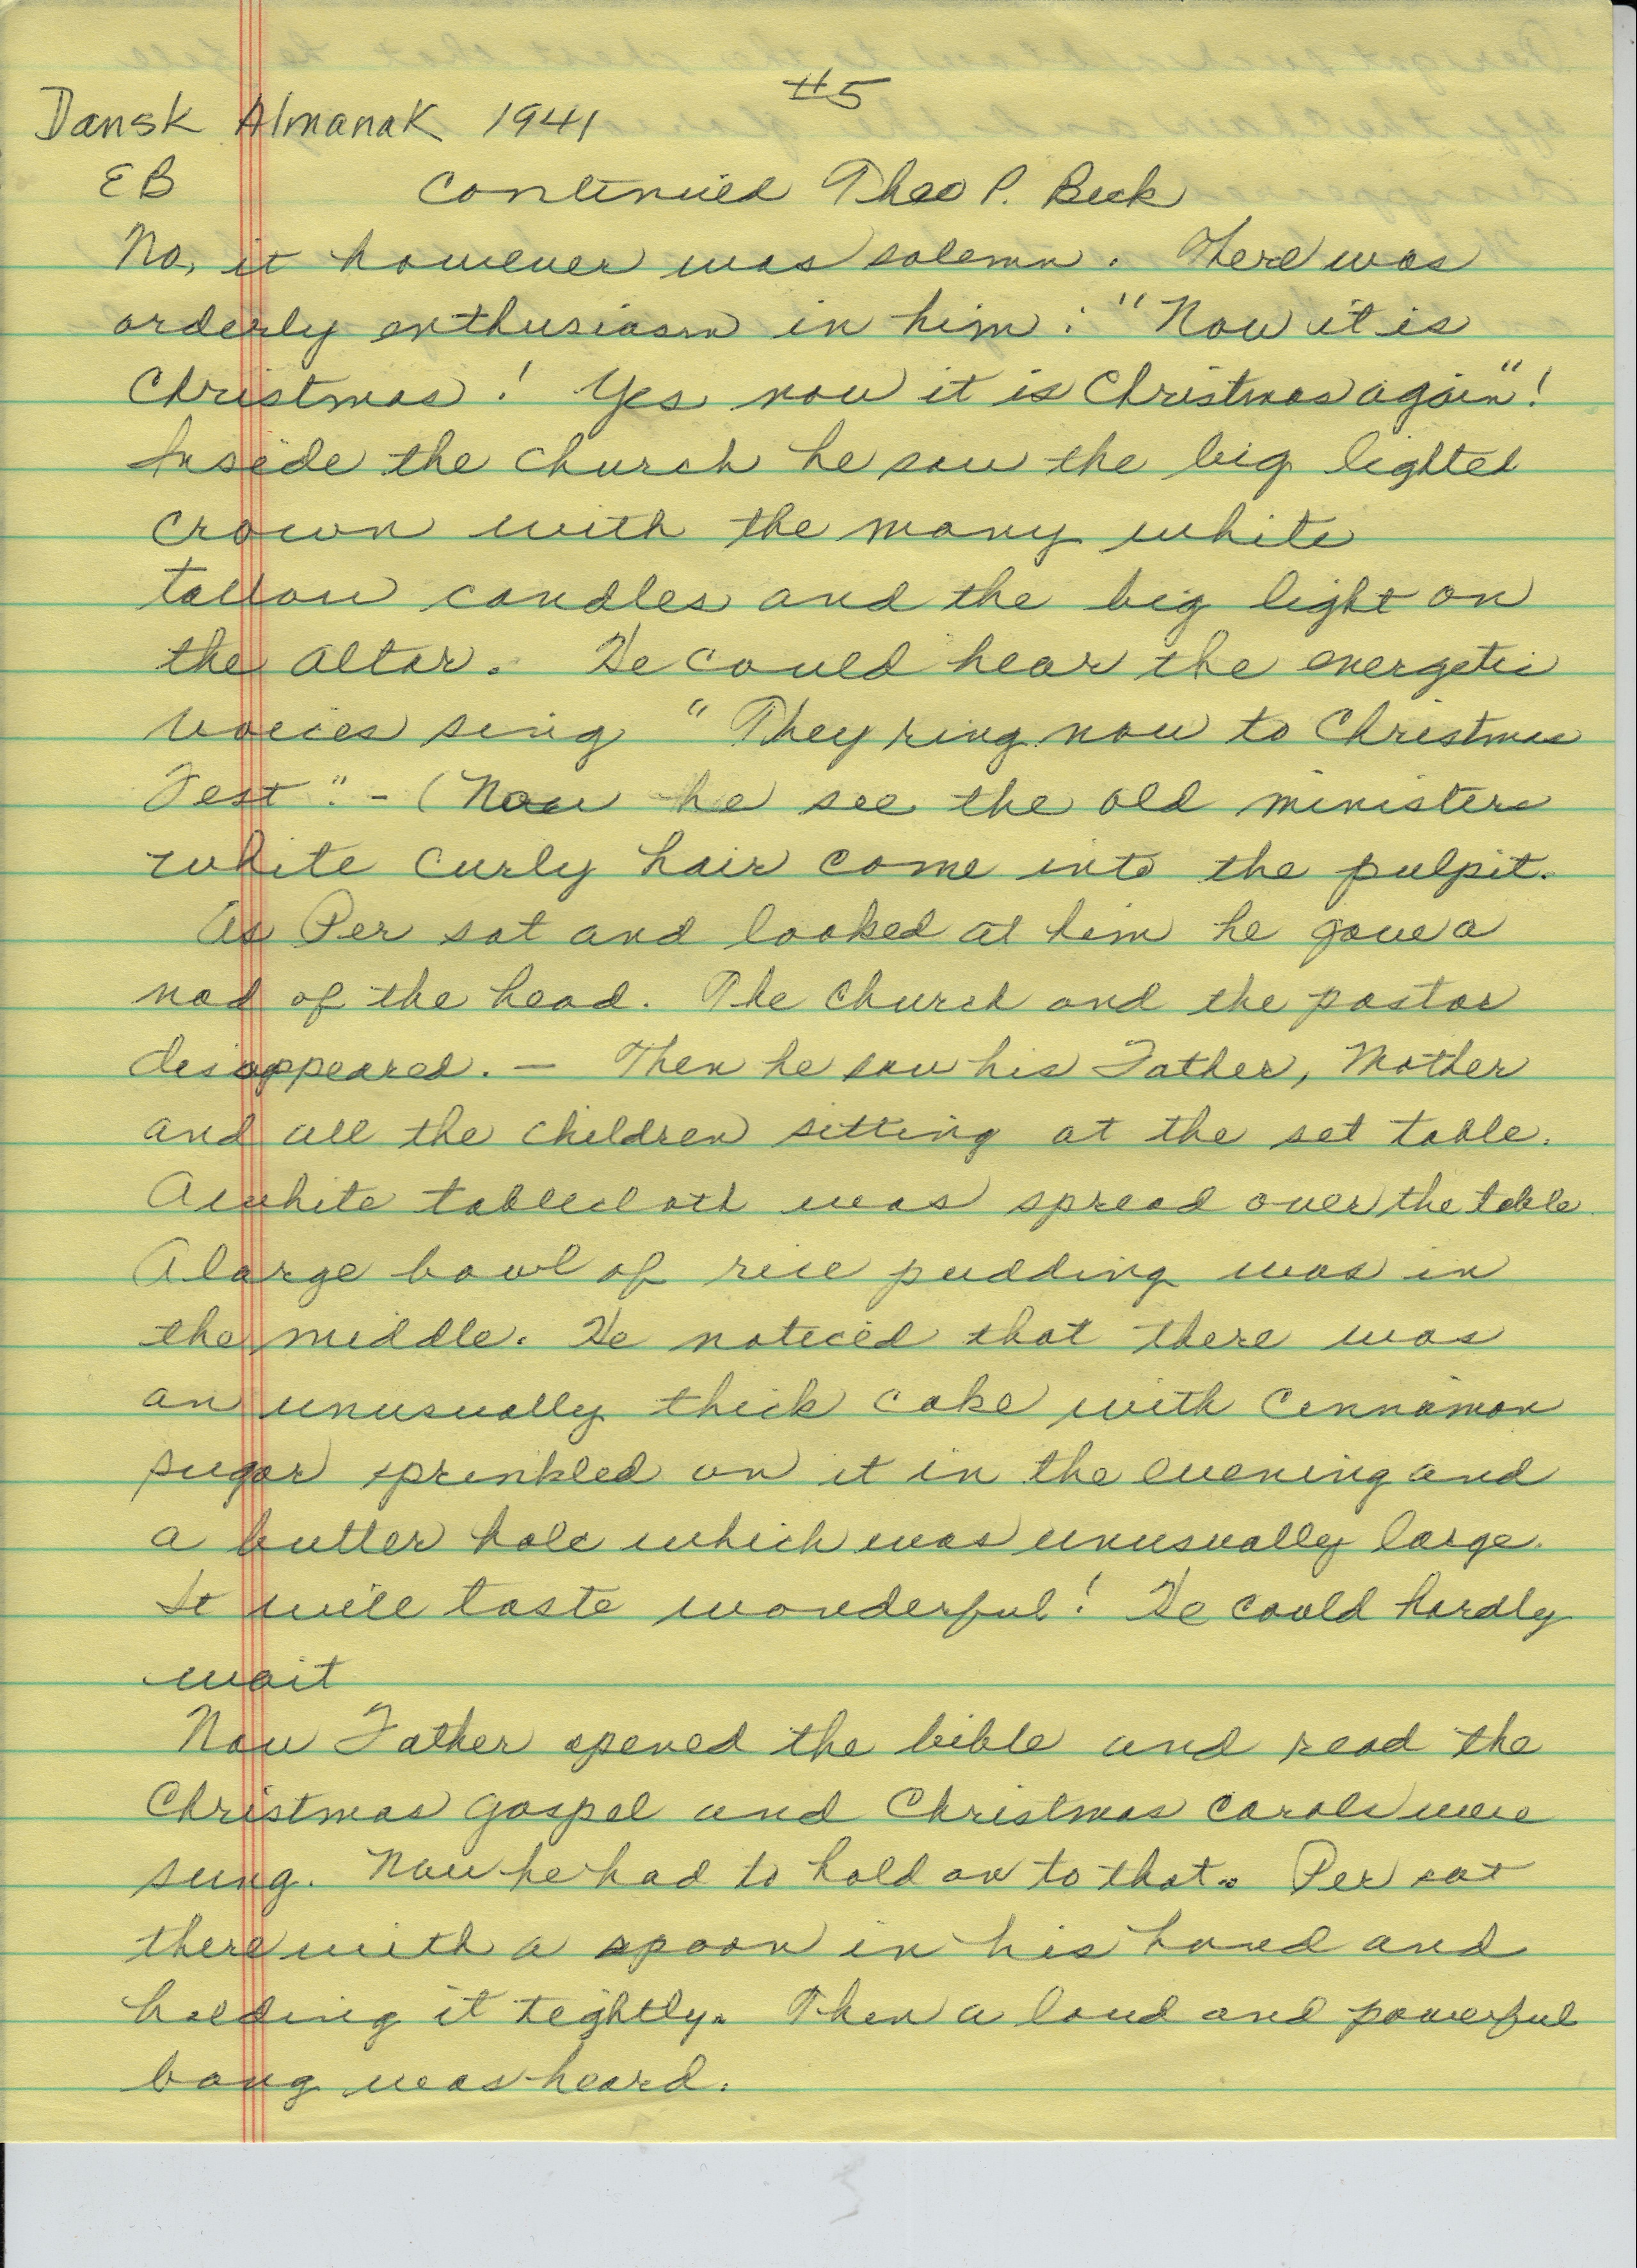 #5
Dansk Almanak 1941
EB continued Theo P. Beck
No, it however was solemn. There was
orderly enthusiasm in him: "Now it is
Christmas! Yes now it is Christmas again"!
Inside the church he saw the big lighted
crown with the many white
tallow candles and the big light on
the altar. He could hear the energetic
voices sing "They ring now to Christmas
Fest". - (Now he see the old ministers
white curly hair come into the pulpit.
As Per sat and looked at him he gave a
nod of the head. The church and the pastor
disappeared. - Then he saw his Father, Mother
and all the children sitting at the set table.
A white tablecloth was spread over the table.
A large bowl of rice pudding was in
the middle. He noticed that there was
an unusually thick cake with cinnamon
sugar sprinkled on it in the evening and
a butter hole which was unusually large.
It will taste wonderful! He could hardly
wait
Now Father opened the bible and read the
Christmas gospel and Christmas carols were
sung. Now he had to hold on to that. Per sat
there with a spoon in his hand and
holding it tightly. Then a loud and powerful
bang was heard.